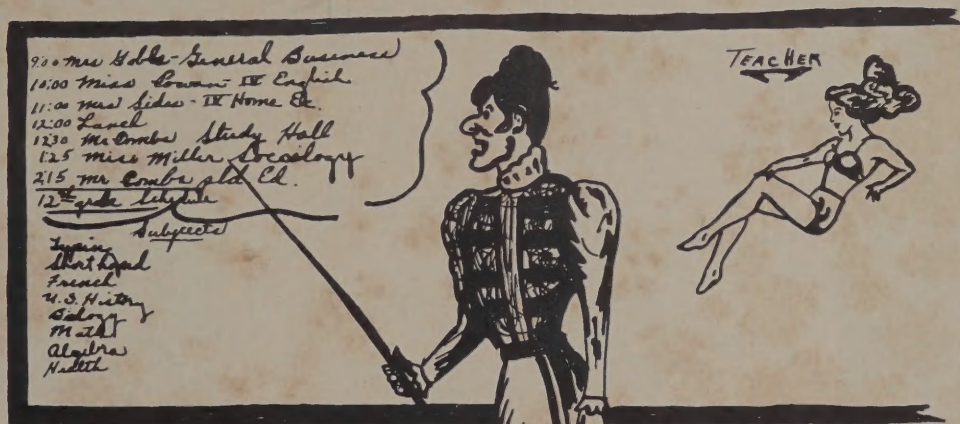 9:00 Mrs Goble - General Business
10:00 Miss Cowan - IV English
11:00 Mrs Sides - IV Home Ec.
12:00 Lunch
1230 Mr Combs Study Hall
125 Miss Miller Socoilogy
215 Mr Combs phd Ed.
12th grade Schedule
Subjects
Typin
Shorthand
French
U.S. History
Biology
Math
Algebra
Health
TEACHER